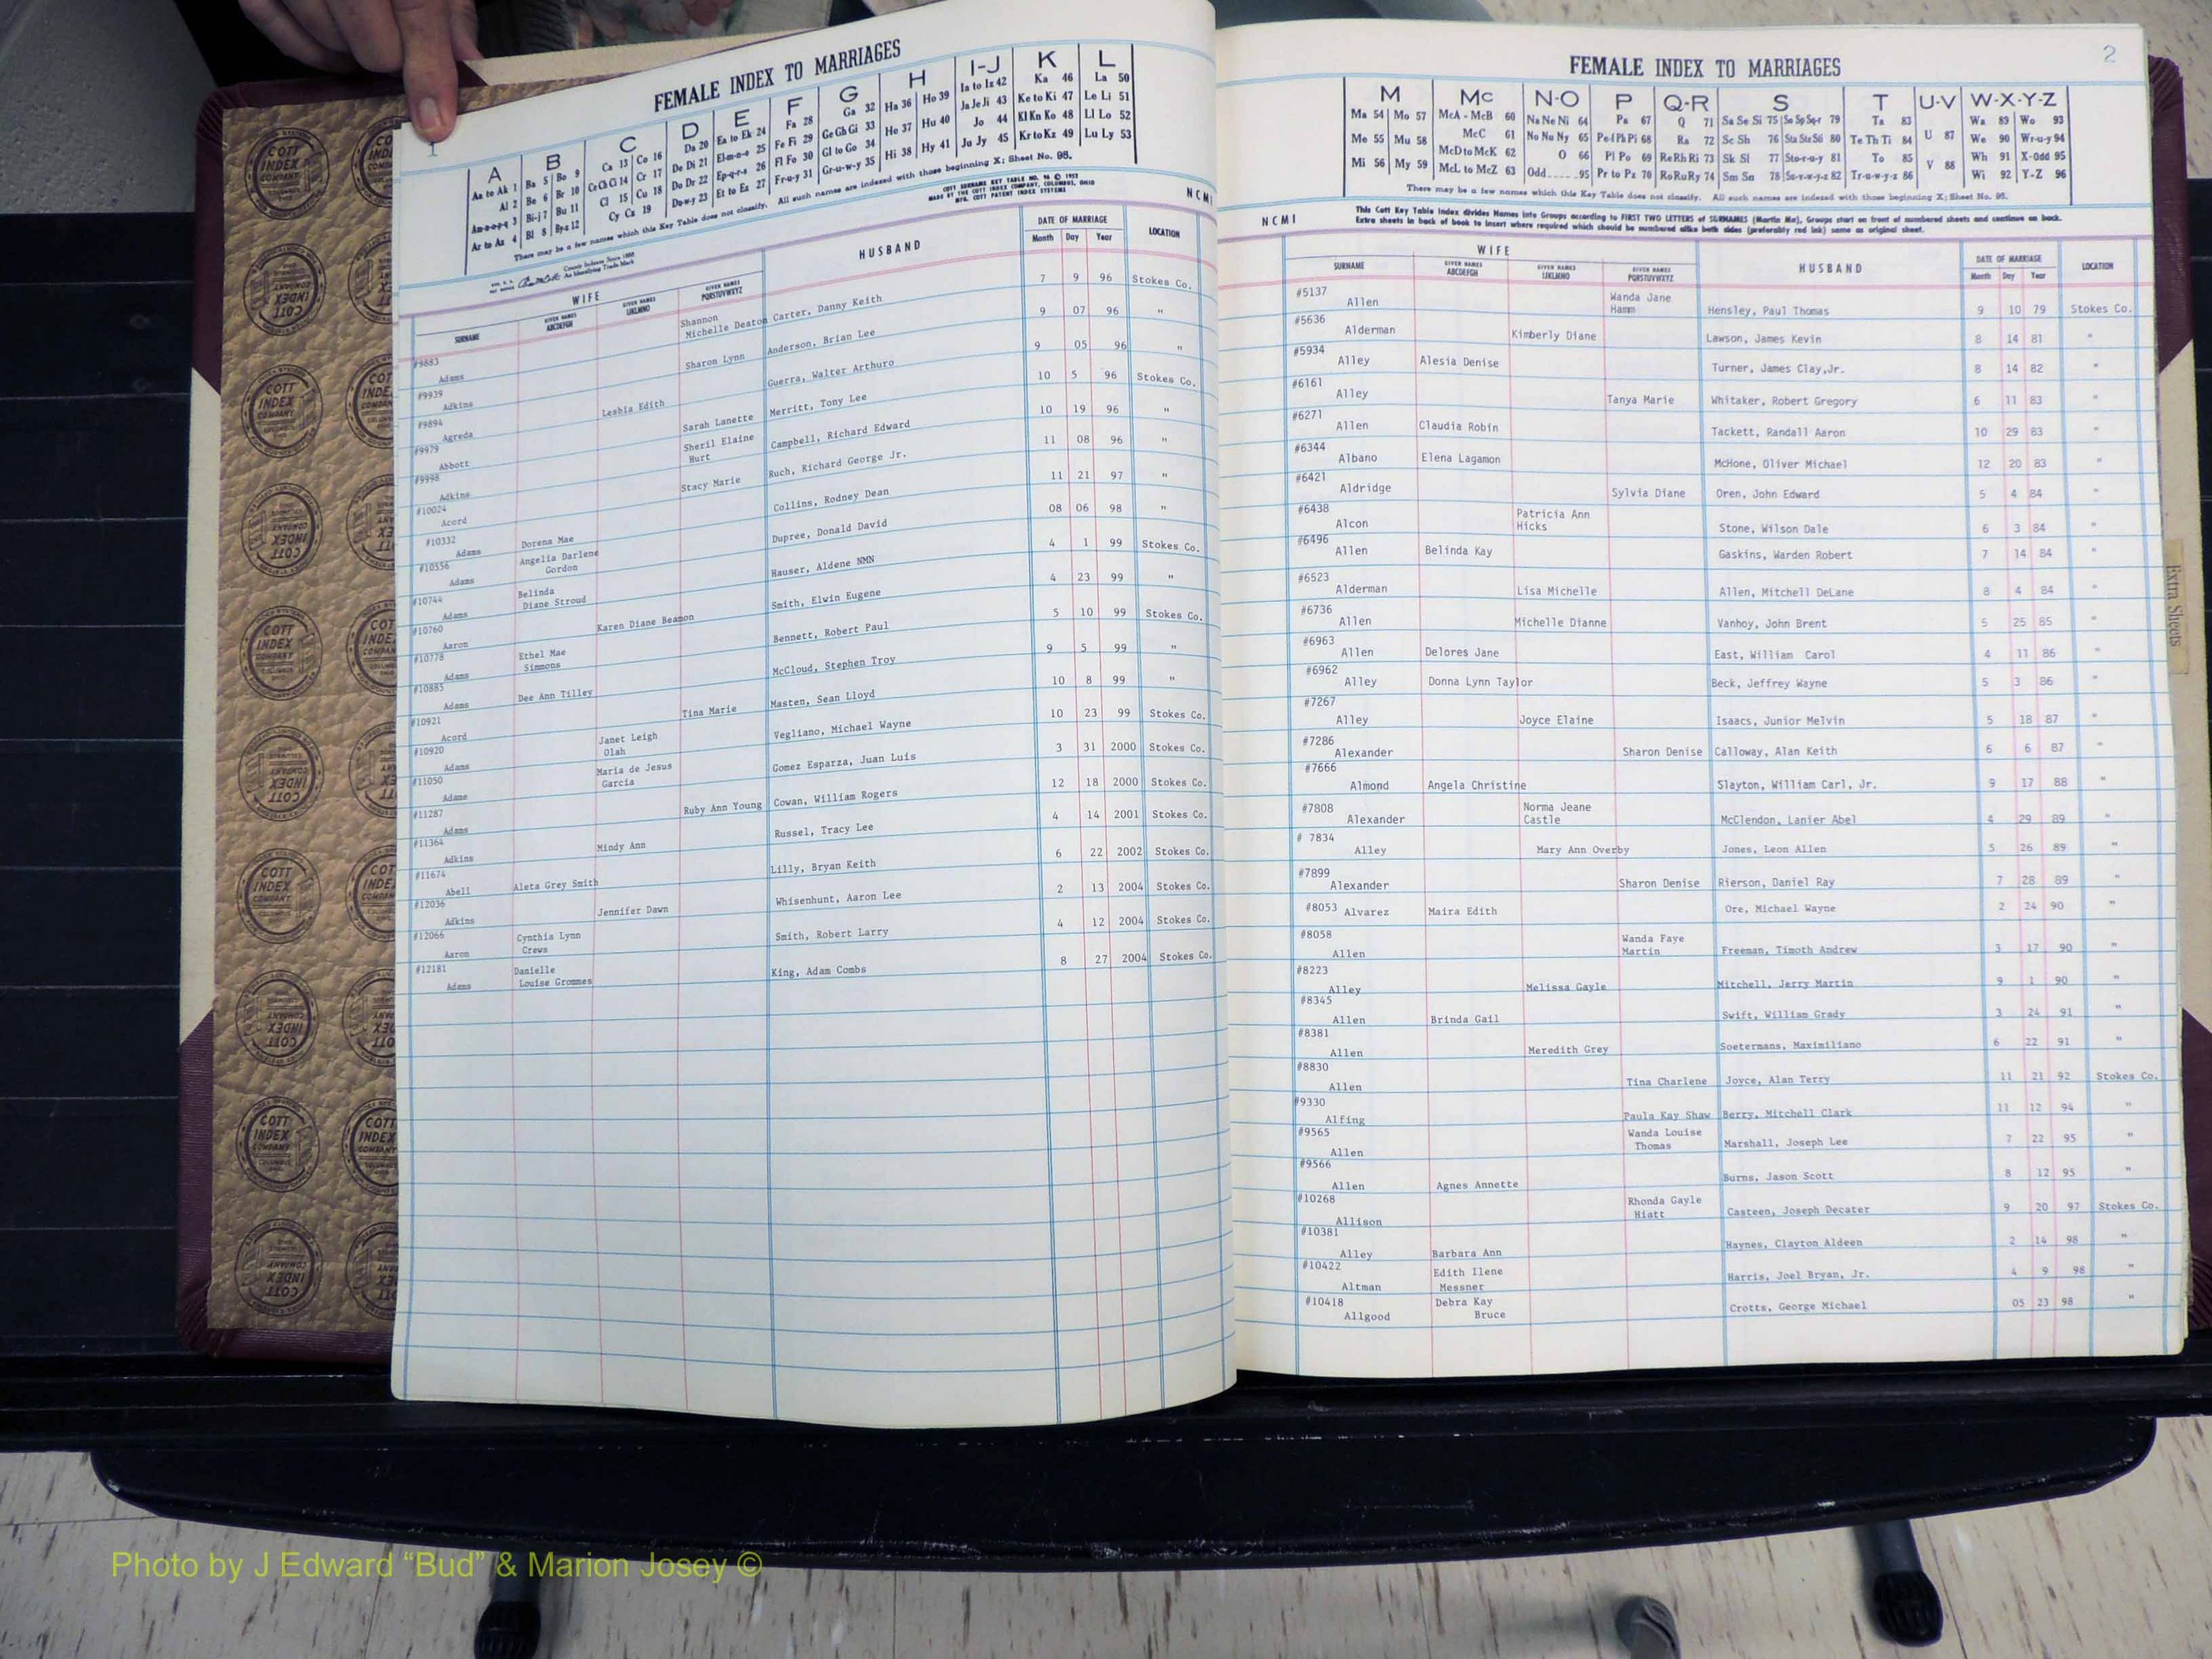 FEMALE INDEX TO MARRIAGES
1
A B C D E F G H I-J K L
Aa to Ak 1 Ba 5 Bo 9 Ca 13 Co 16 Da 20 Ea to Ek 24 Fa 28 Ga 32 Ha 36 Ho 39 Ia to Iz 42 Ka 46 La 50
Al 2 Be 6 Br 10 Ce Ch Ci 14 Cr 17 De Di 21 El-m-n-o 25 Fe Fi 29 Ge Gh Gi 33 He 37 Hu 40 Ja Je Ji 43 Ke to Ki 47 Le Li 51
Am-n-o-p-q 3 Bi-j 7 Bu 11 Cl 15 Cu 18 Do Dr 22 Ep-q-r-s 26 Fl Fo 30 Gl to Go 34 Hi 38 Hy 41 Jo 44 Kl Kn Ko 48 Ll Lo 52
Ar to Az 4 Bl 8 By-z 12 Cy Cz 19 Du-w-y 23 Et to Ez 27 Fr-u-y 31 Gr-u-w-y 35 Ju Jy 45 Kr to Kz 49 Lu Ly 53
There may be a few names which this Key Table does not classify. All such names are indexed with those beginning X; Sheet No. 95.
COTT SURNAME KEY TABLE NO. 96 © 1953
MADE BY THE COTT INDEX COMPANY, COLUMBUS, OHIO
MFG. COTT PATENT INDEX SYSTEMS
County Indexes Since 1888
As Identifying Trade Mark
NCMI
WIFE HUSBAND DATE OF MARRIAGE LOCATION
SURNAME GIVEN NAMES ABCDEFGH GIVEN NAMES IJKLMNO GIVEN NAMES PQRSTUVWXYZ Month Day Year
#9883 Adams Shannon Michelle Deaton Carter, Danny Keith 7 9 96 Stokes Co.
#9939 Adkins Sharon Lynn Anderson, Brian Lee 9 07 96 "
#9894 Agreda Lesbia Edith Guerra, Walter Arthuro 9 05 96 "
#9979 Abbott Sarah Lanette Merritt, Tony Lee 10 5 96 Stokes Co.
#9998 Adkins Sheril Elaine Hurt Campbell, Richard Edward 10 19 96 "
#10024 Acord Stacy Marie Ruch, Richard George Jr. 11 08 96 "
#10332 Adams Dorena Mae Collins, Rodney Dean 11 21 97 "
#10556 Adams Angelia Darlene Gordon Dupree, Donald David 08 06 98 "
#10744 Adams Belinda Diane Stroud Hauser, Aldene NMN 4 1 99 Stokes Co.
#10760 Aaron Karen Diane Beamon Smith, Elwin Eugene 4 23 99 "
#10778 Adams Ethel Mae Simmons Bennett, Robert Paul 5 10 99 Stokes Co.
#10885 Adams Dee Ann Tilley McCloud, Stephen Troy 9 5 99 "
#10921 Acord Tina Marie Masten, Sean Lloyd 10 8 99 "
#10920 Adams Janet Leigh Olah Vegliano, Michael Wayne 10 23 99 Stokes Co.
#11050 Adame Maria de Jesus Garcia Gomez Esparza, Juan Luis 3 31 2000 Stokes Co.
#11287 Adams Ruby Ann Young Cowan, William Rogers 12 18 2000 Stokes Co.
#11364 Adkins Mindy Ann Russel, Tracy Lee 4 14 2001 Stokes Co.
#11674 Abell Aleta Grey Smith Lilly, Bryan Keith 6 22 2002 Stokes Co.
#12036 Adkins Jennifer Dawn Whisenhunt, Aaron Lee 2 13 2004 Stokes Co.
#12066 Aaron Cynthia Lynn Crews Smith, Robert Larry 4 12 2004 Stokes Co.
#12181 Adams Danielle Louise Grommes King, Adam Combs 8 27 2004 Stokes Co.
FEMALE INDEX TO MARRIAGES
2
M Mc N-O P Q-R S T U-V W-X-Y-Z
Ma 54 Mo 57 McA - McB 60 Na Ne Ni 64 Pa 67 Q 71 Sa Se Si 75 So Sp Sq-r 79 Ta 83 U 87 Wa 89 Wo 93
Me 55 Mu 58 McC 61 No Nu Ny 65 Pe-f Ph Pi 68 Ra 72 Sc Sh 76 Sta Ste Sti 80 Te Th Ti 84 V 88 We 90 Wr-u-y 94
Mi 56 My 59 McD to McK 62 O 66 Pl Po 69 Re Rh Ri 73 Sk Sl 77 Sto-r-u-y 81 To 85 Wh 91 X-Odd 95
McL to McZ 63 Odd 95 Pr to Pz 70 Ro Ru Ry 74 Sm Sn 78 Su-v-w-y-z 82 Tr-u-w-y-z 86 Wi 92 Y-Z 96
There may be a few names which this Key Table does not classify. All such names are indexed with those beginning X; Sheet No. 95.
NCMI
This Cott Key Table Index divides Names into Groups according to FIRST TWO LETTERS of SURNAMES (Martin Ma), Groups start on front of numbered sheets and continue on back.
Extra sheets in back of book to insert where required which should be numbered alike both sides (preferably red ink) same as original sheet.
WIFE HUSBAND DATE OF MARRIAGE LOCATION
SURNAME GIVEN NAMES ABCDEFGH GIVEN NAMES IJKLMNO GIVEN NAMES PQRSTUVWXYZ Month Day Year
#5137 Allen Wanda Jane Hamm Hensley, Paul Thomas 9 10 79 Stokes Co.
#5636 Alderman Kimberly Diane Lawson, James Kevin 8 14 81 "
#5934 Alley Alesia Denise Turner, James Clay,Jr. 8 14 82 "
#6161 Alley Tanya Marie Whitaker, Robert Gregory 6 11 83 "
#6271 Allen Claudia Robin Tackett, Randall Aaron 10 29 83 "
#6344 Albano Elena Lagamon McHone, Oliver Michael 12 20 83 "
#6421 Aldridge Sylvia Diane Oren, John Edward 5 4 84 "
#6438 Alcon Patricia Ann Hicks Stone, Wilson Dale 6 3 84 "
#6496 Allen Belinda Kay Gaskins, Warden Robert 7 14 84 "
#6523 Alderman Lisa Michelle Allen, Mitchell DeLane 8 4 84 "
#6736 Allen Michelle Dianne Vanhoy, John Brent 5 25 85 "
#6963 Allen Delores Jane East, William Carol 4 11 86 "
#6962 Alley Donna Lynn Taylor Beck, Jeffrey Wayne 5 3 86 "
#7267 Alley Joyce Elaine Isaacs, Junior Melvin 5 18 87 "
#7286 Alexander Sharon Denise Calloway, Alan Keith 6 6 87 "
#7666 Almond Angela Christine Slayton, William Carl, Jr. 9 17 88 "
#7808 Alexander Norma Jeane Castle McClendon, Lanier Abel 4 29 89 "
# 7834 Alley Mary Ann Overby Jones, Leon Allen 5 26 89 "
#7899 Alexander Sharon Denise Rierson, Daniel Ray 7 28 89 "
#8053 Alvarez Maira Edith Ore, Michael Wayne 2 24 90 "
#8058 Allen Wanda Faye Martin Freeman, Timoth Andrew 3 17 90 "
#8223 Alley Melissa Gayle Mitchell, Jerry Martin 9 1 90 "
#8345 Allen Brinda Gail Swift, William Grady 3 24 91 "
#8381 Allen Meredith Grey Soetermans, Maximiliano 6 22 91 "
#8830 Allen Tina Charlene Joyce, Alan Terry 11 21 92 Stokes Co.
#9330 Alfing Paula Kay Shaw Berry, Mitchell Clark 11 12 94 "
#9565 Allen Wanda Louise Thomas Marshall, Joseph Lee 7 22 95 "
#9566 Allen Agnes Annette Burns, Jason Scott 8 12 95 "
#10268 Allison Rhonda Gayle Hiatt Casteen, Joseph Decater 9 20 97 Stokes Co.
#10381 Alley Barbara Ann Haynes, Clayton Aldeen 2 14 98 "
#10422 Altman Edith Ilene Messner Harris, Joel Bryan, Jr. 4 9 98 "
#10418 Allgood Debra Kay Bruce Crotts, George Michael 05 23 98 "
Extra Sheets
COTT INDEX COMPANY COLUMBUS OHIO
Photo by J Edward “Bud” & Marion Josey ©